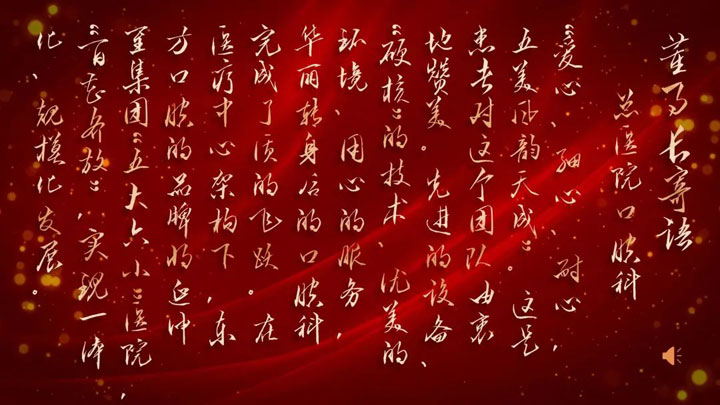 董事长寄语
总医院口腔科
“爱心、细心、耐心，
五美风韵天成”。这是
患者对这个团队由衷
地赞美。先进的设备、
“硬核”的技术、优美的
环境、用心的服务，
华丽转身后的口腔科
完成了质的飞跃。在
医疗中心架构下，东
方口腔的品牌将延伸
至集团“五大六小”医院，
“百花齐放”，实现一体
化、规模化发展。